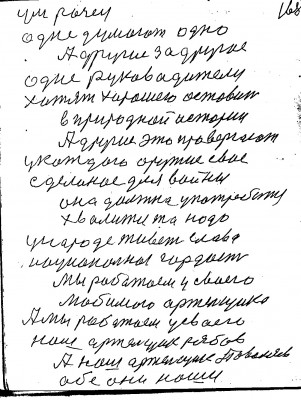 168
ум
одне думают одно
А другие за другое
одне руковадители
хатят харошего оставит
в природной истории
А другие это проверяют
у каждого оружие свое
сделаное для войны
она должна употребит
хвалит надо
у народе живет слава
национално гордост
мы работаем у своего
любимого артелщика
А мы работаем у своего
наш артелщик рябов
А наш артелщик
обе они наши